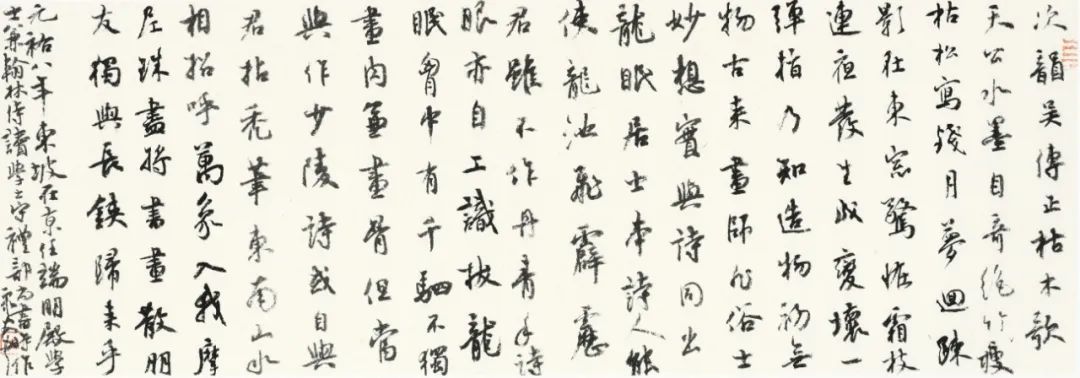 次韻吳傳正枯木歌
天公水墨自奇絕竹瘦
枯松寫殘月夢迴疎
影在東窓驚怪霜枝
連夜發生成變壞一
彈指乃知造物初無
物古來畫師非俗士
妙想實與詩同出
龍眠居士本詩人能
使龍池飛霹靂
君雖不作丹青手詩
眼亦自工識拔龍
眠胷中有千駟不獨
畫肉兼畫骨但當
與作少陵詩或自與
君拈禿筆東南山水
相招呼萬象入我摩
尼珠盡將書畫散朋
友獨與長鋏歸來乎
元祐八年東坡在京任端明殿學
士兼翰林侍讀學士守禮部尚書時作